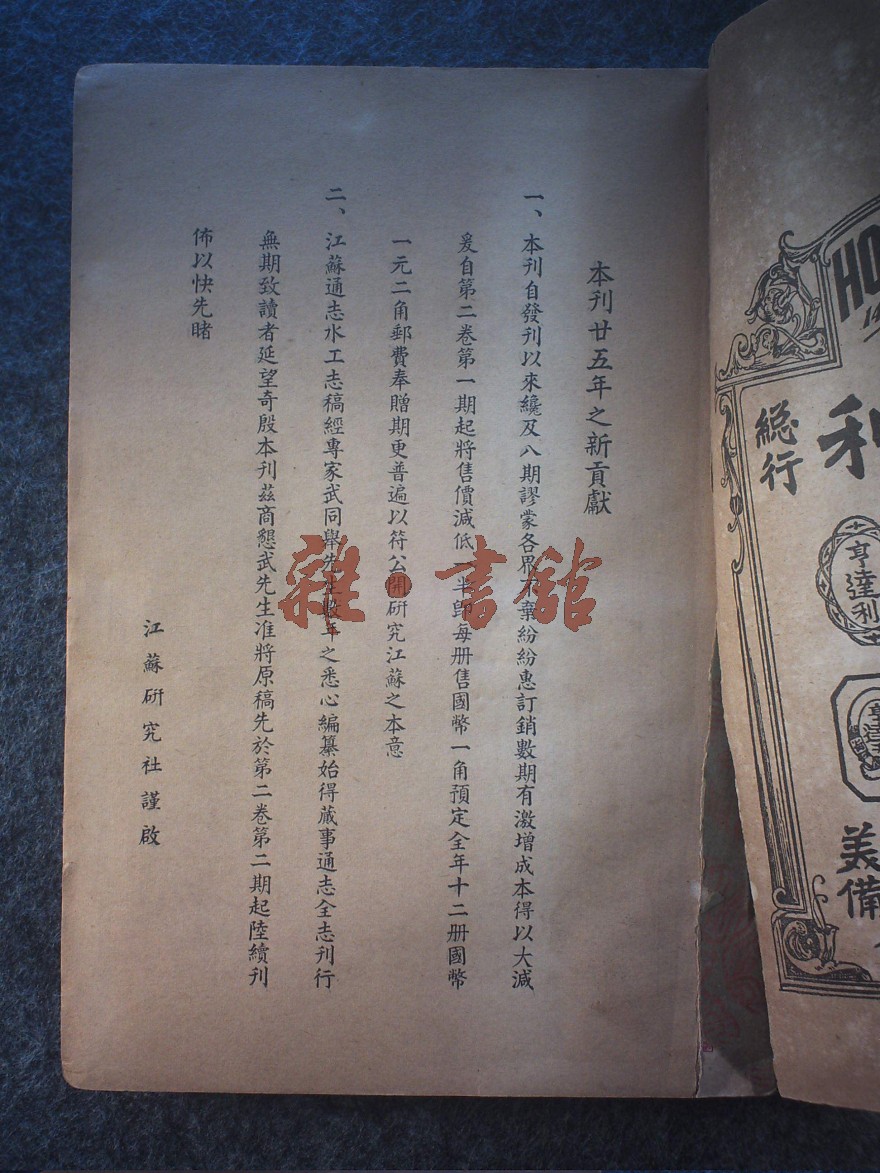 HO
利
総行
亨達利
亨達利
美備
本刊廿五年之新貢獻
一、本刊自發刊以來纔及八期謬蒙各界不棄紛紛惠訂銷數期有激增成本得以大減
爰自第二卷第一期起將售價減低一半卽每册售國幣一角預定全年十二册國幣
一元二角郵費奉贈期更普遍以符公開研究江蘇之本意
二、江蘇通志水工志稿經專家武同舉先生數年之悉心編纂始得蕆事通志全志刊行
無期致讀者延望奇殷本刊茲商懇武先生准將原稿先於第二卷第二期起陸續刊
佈以快先睹
江蘇研究社謹啟
雜·書館